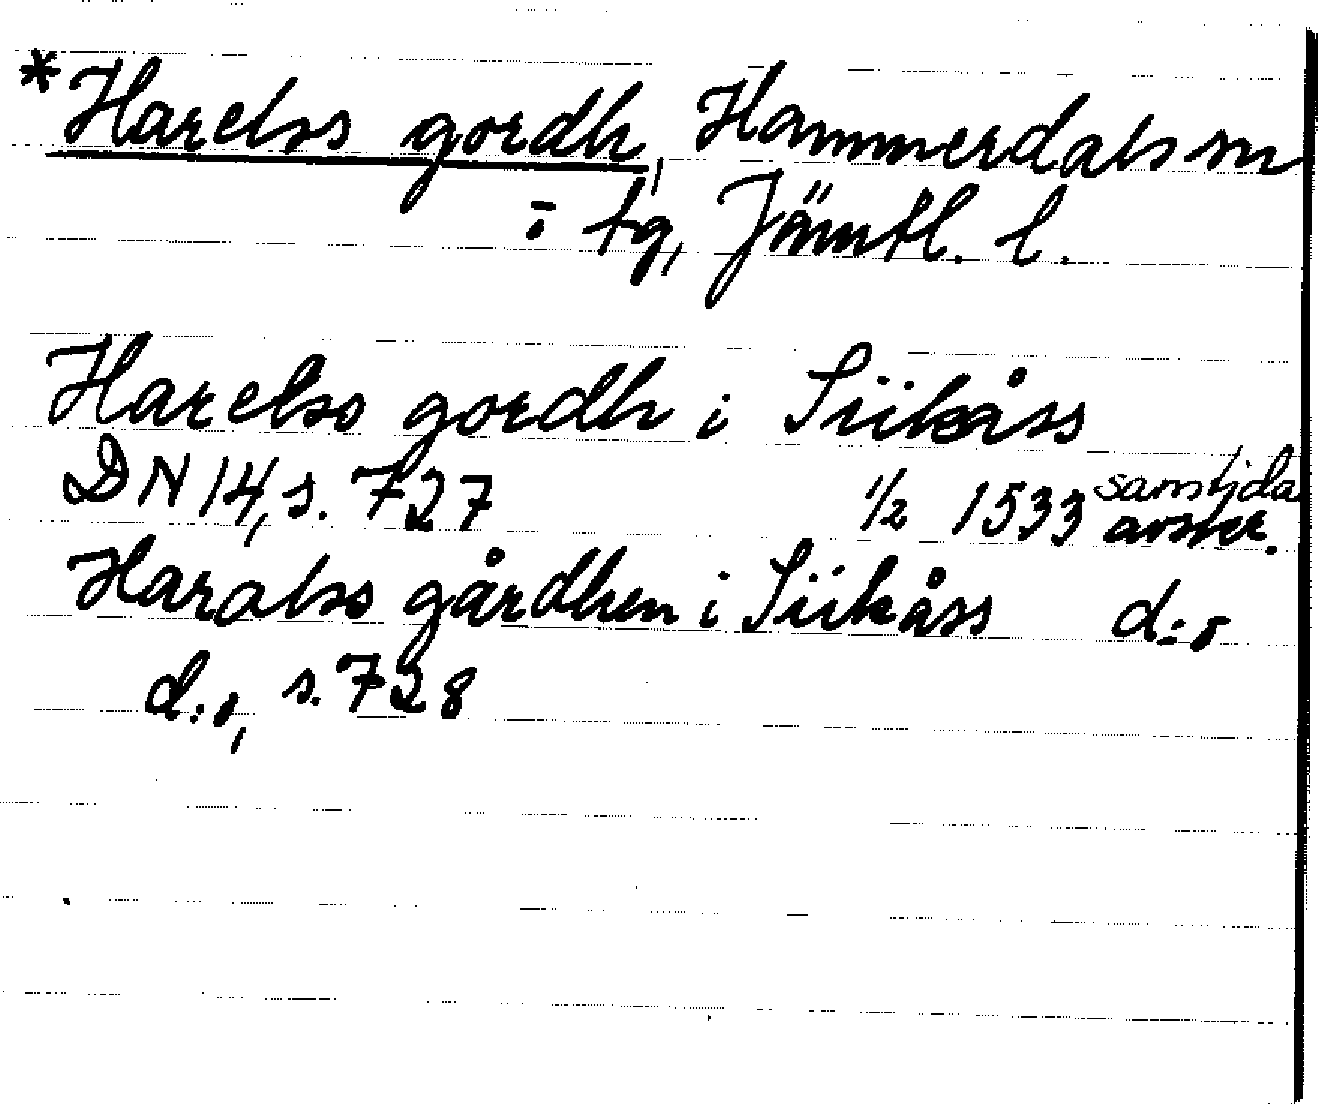 *Harelss gordh, Hammerdals sn
i tg, Jämtl. l.
Harelss gordh i Siikåss
DN 14, s. 727 1/2 1533 samtida avskr.
Haralss gårdhen i Siikåss d:o
d:o, s. 728